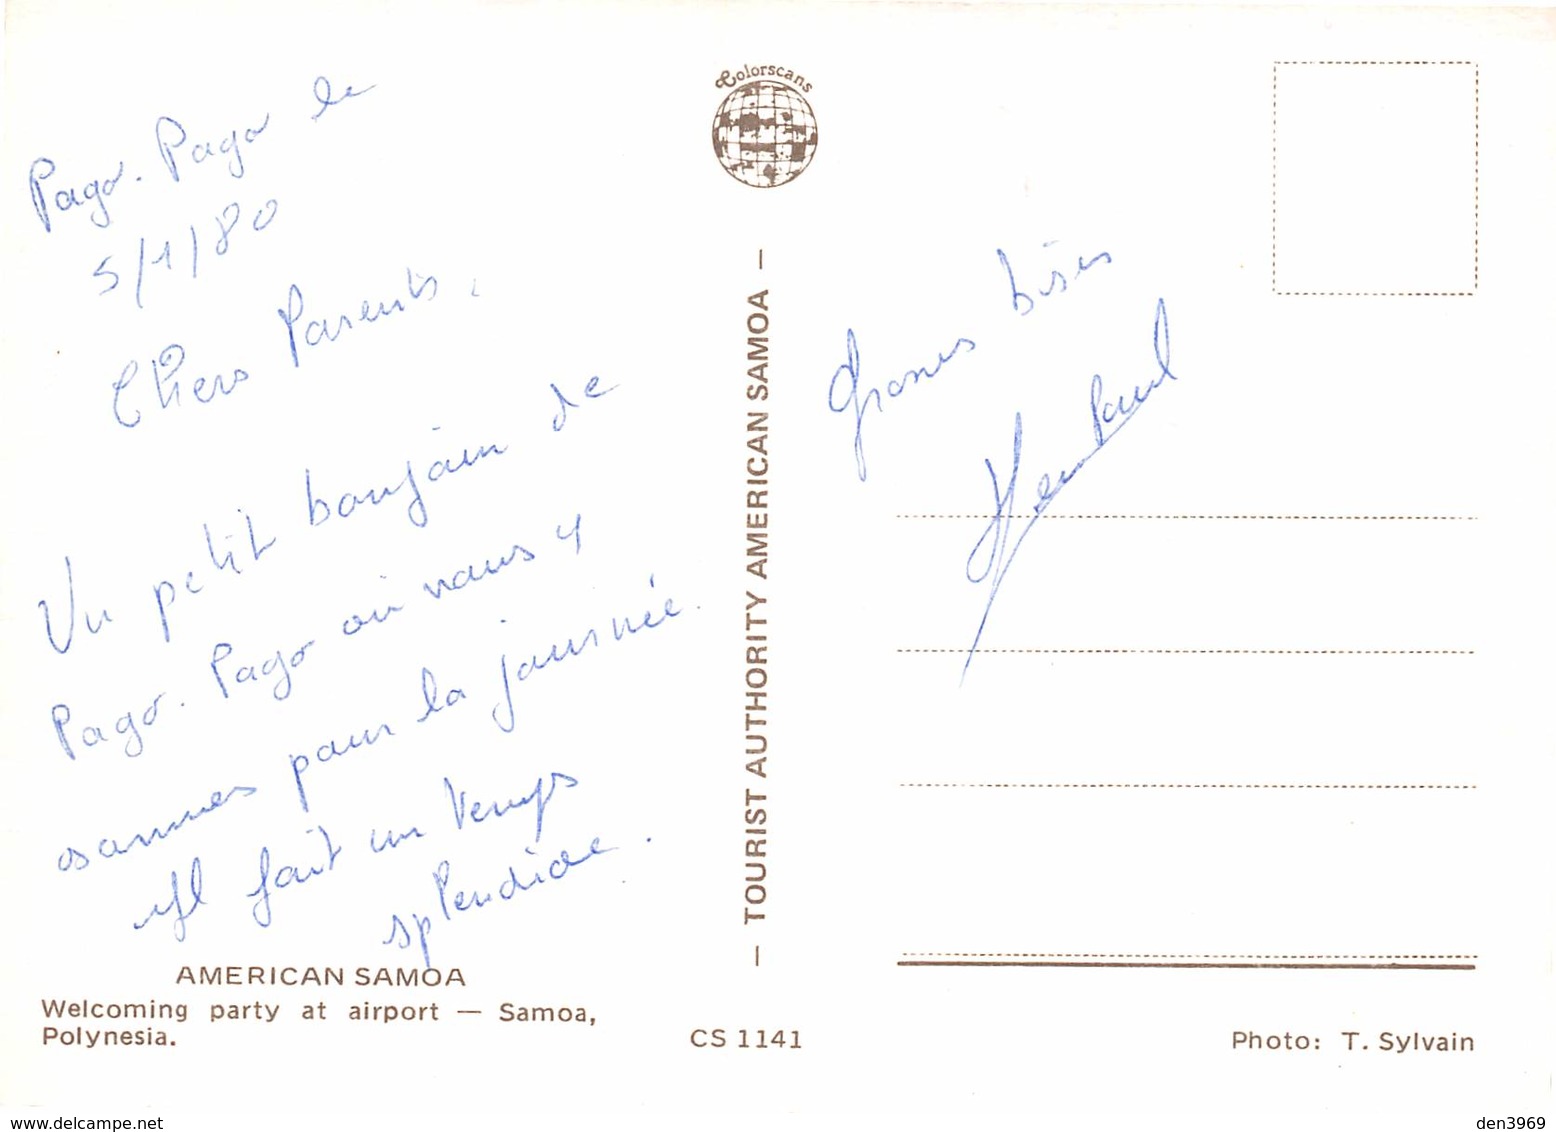 Pago-Pago le
5/1/80
Chers Parents,
Un petit bonjour de
Pago-Pago où nous y
sommes pour la journée.
Il fait un temps
splendide.
AMERICAN SAMOA
Welcoming party at airport — Samoa,
Polynesia.
Colorscans
— TOURIST AUTHORITY AMERICAN SAMOA —
CS 1141
Grosses bises
Paul
Photo: T. Sylvain
www.delcampe.net
den3969